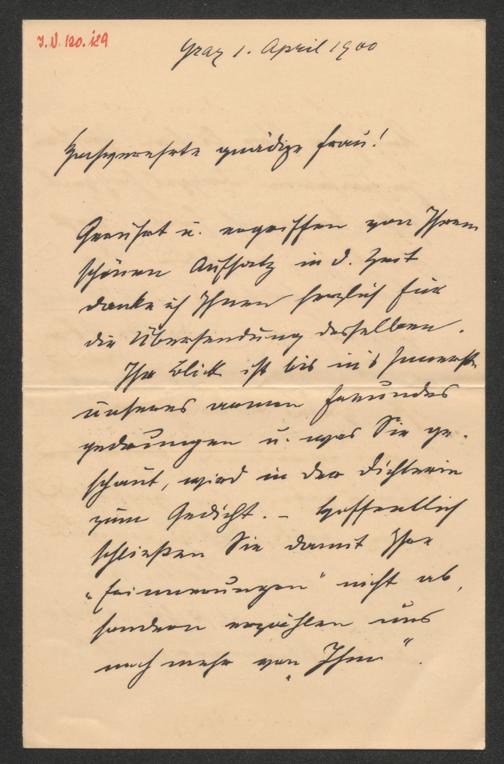 J.N. 120.129
Graz 1. April 1900
Hochverehrte gnädige Frau!
Gerührt u. ergriffen von Ihrem
schönen Aufsatz in d. Zeit
danke ich Ihnen herzlich für
die Übersendung desselben.
Ihr Blick ist bis in's Innerste
unseres armen Freundes
gedrungen u. was Sie ge-
schaut, wird in der Dichterin
zum Gedicht. – Hoffentlich
schließen Sie damit Ihre
„Erinnerungen" nicht ab,
sondern erzählen uns
noch mehr von „Ihm".